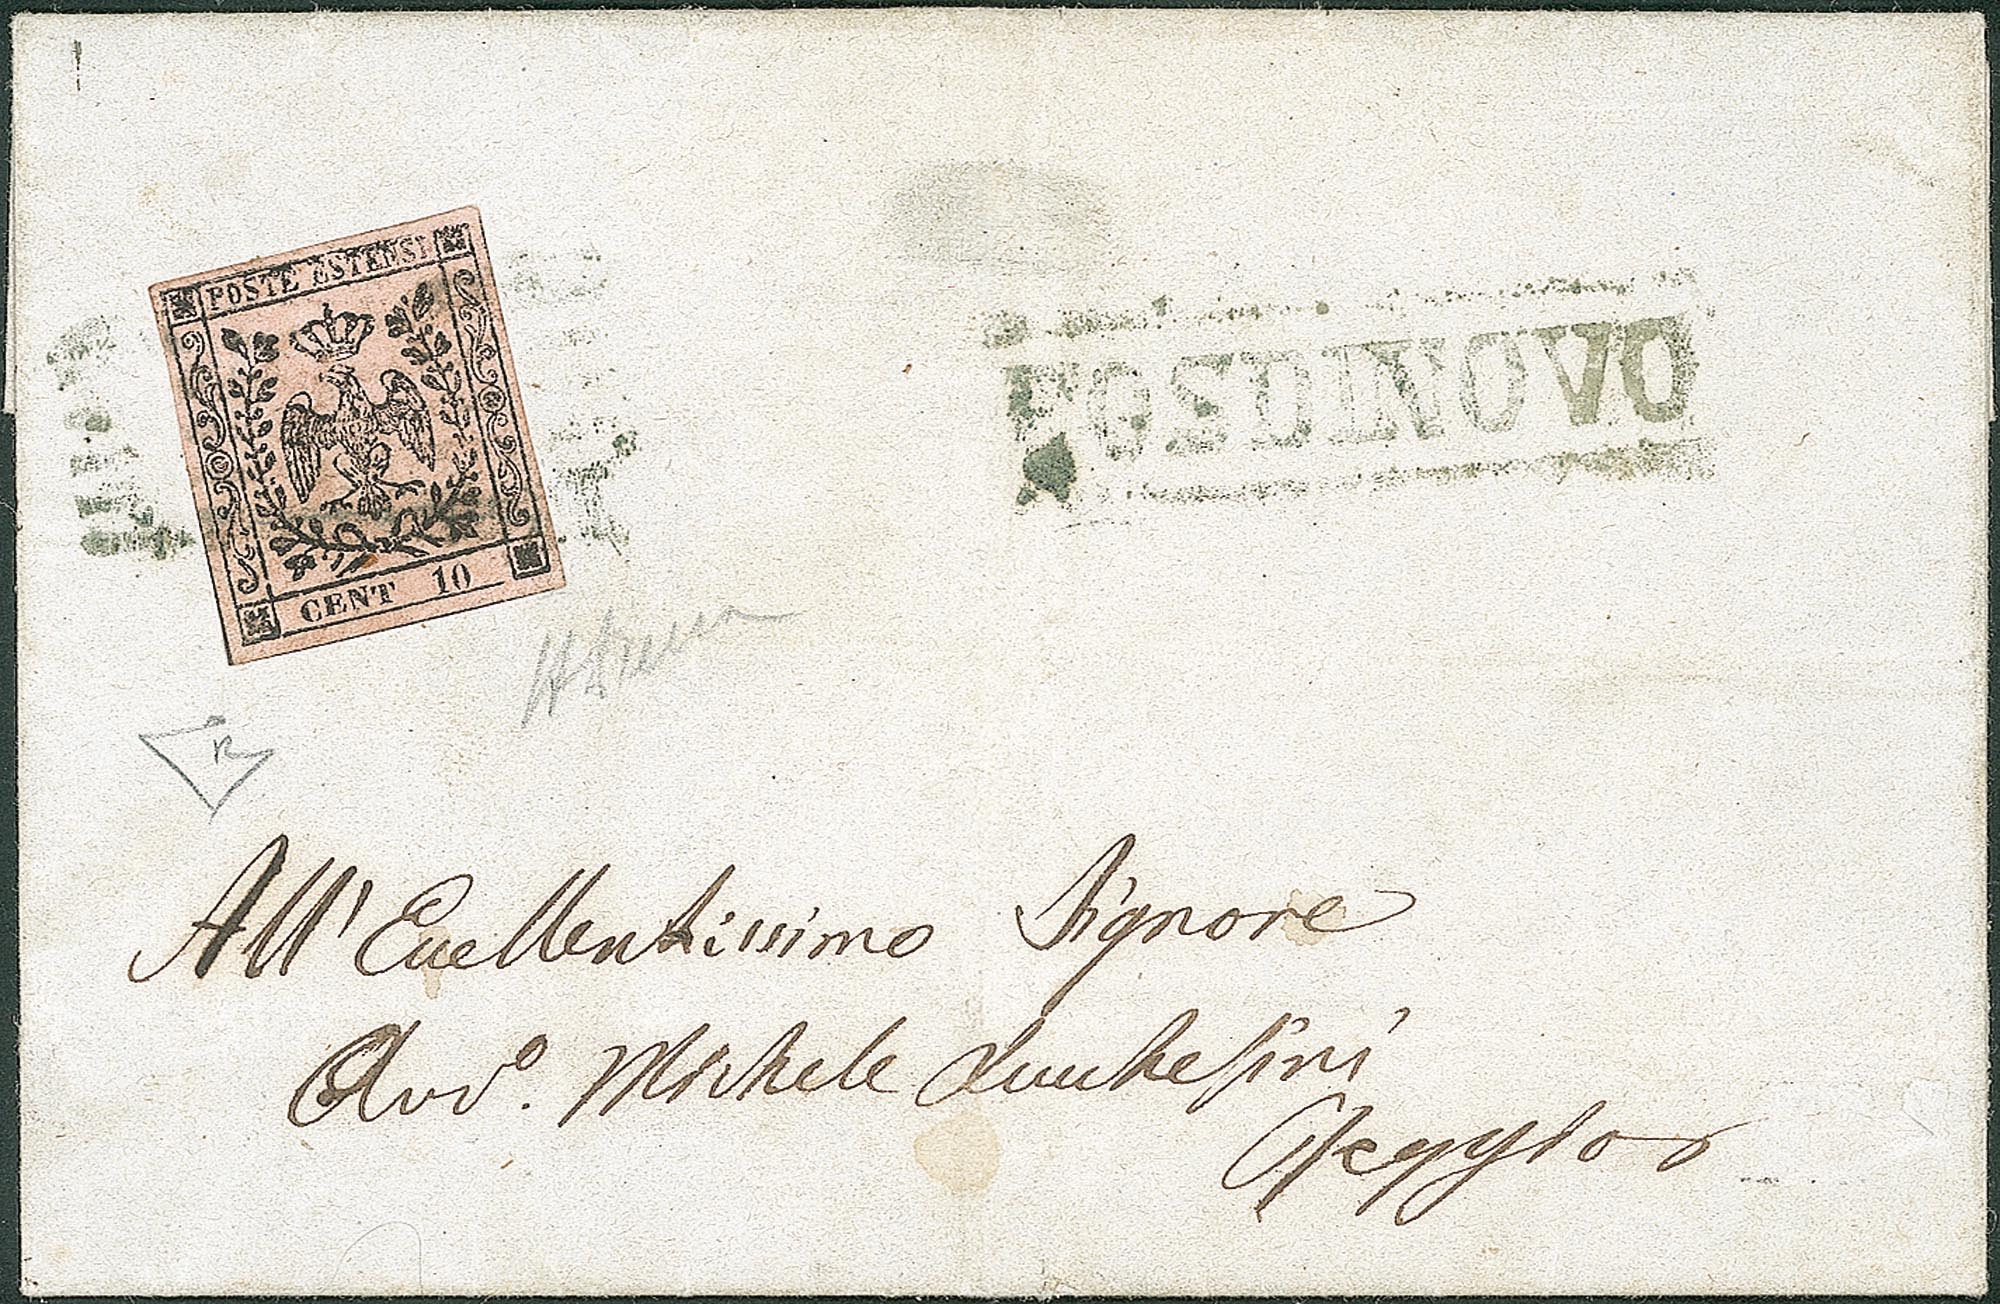 POSTE ESTENSI
CENT 10
FOSDINOVO
All' Eccellentissimo Signore
Avv.º Michele Lucchesini
Reggio